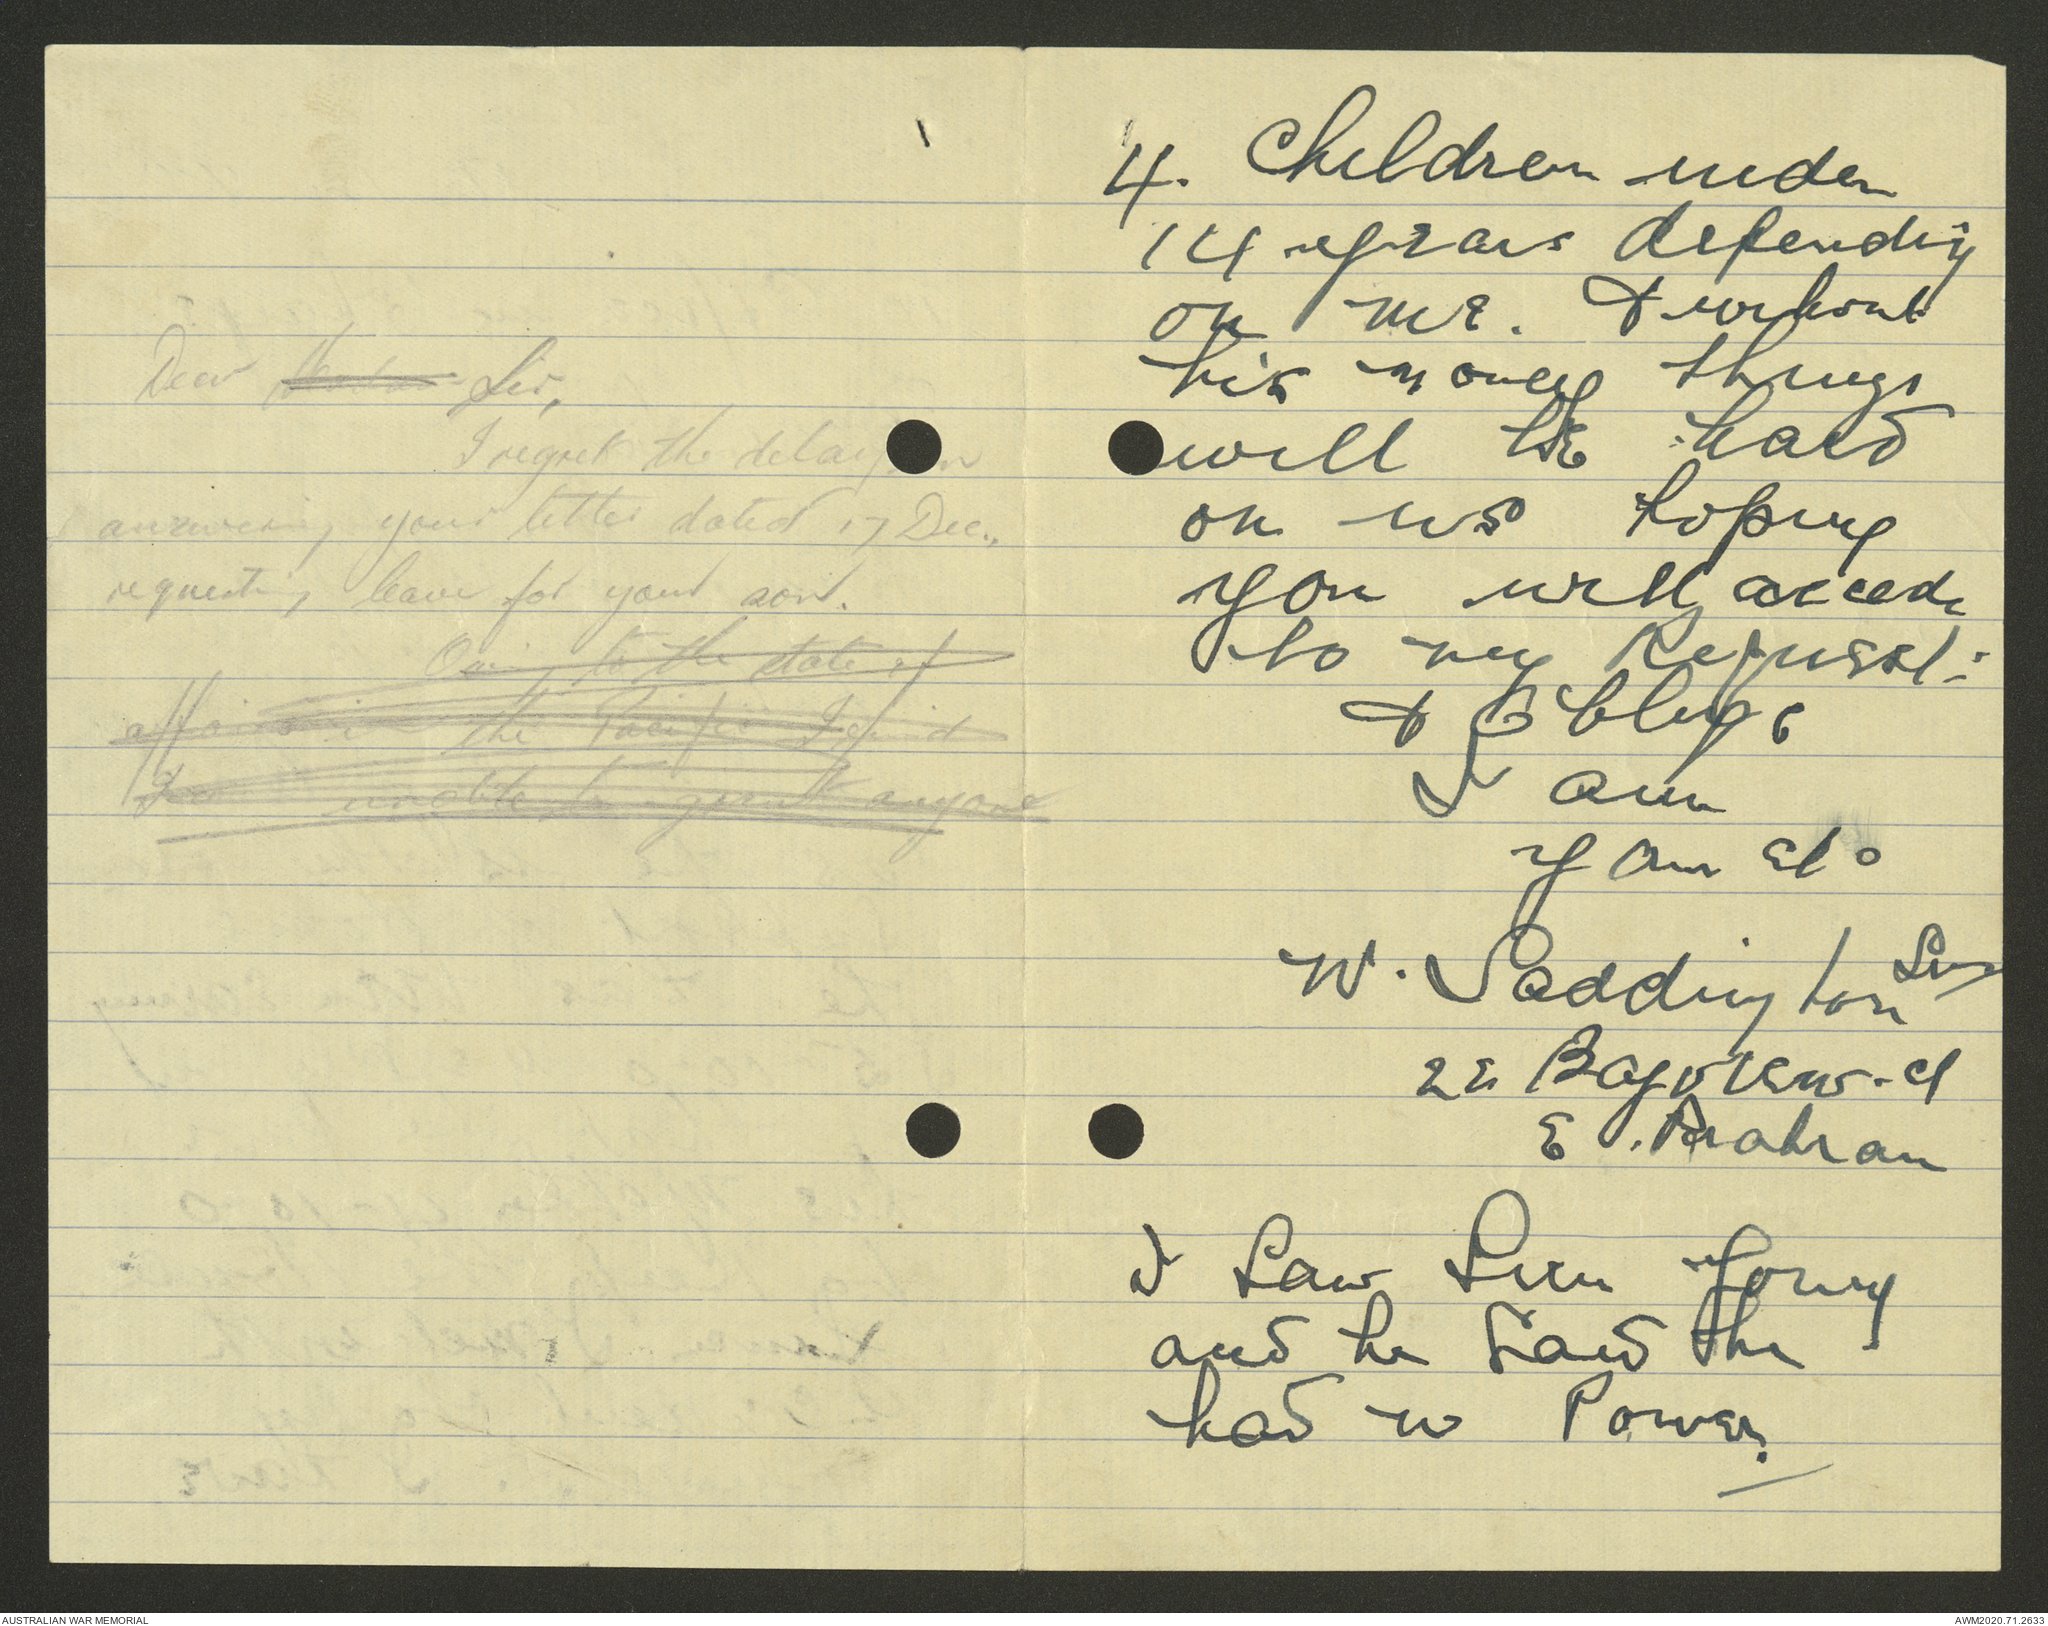 Dear Sir,
I regret the delay in
answering your letter dated 17 Dec.,
requesting leave for your son.
Owing to the state of
affairs in the Pacific I find
unable to grant anyone
4. Children under
14 years depending
on me. & without
his money things
will be hard
on us hoping
you will accede
to my Request:
& Oblige
I am
Your etc
W. Saddington Snr
22 Bayview. St
E. Prahran
I Saw Lieu Young
and he Said the
had no Power.
AUSTRALIAN WAR MEMORIAL
AWM2020.71.2633